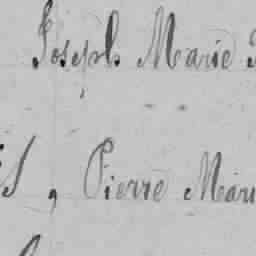 Joseph Marie
, Pierre Mari